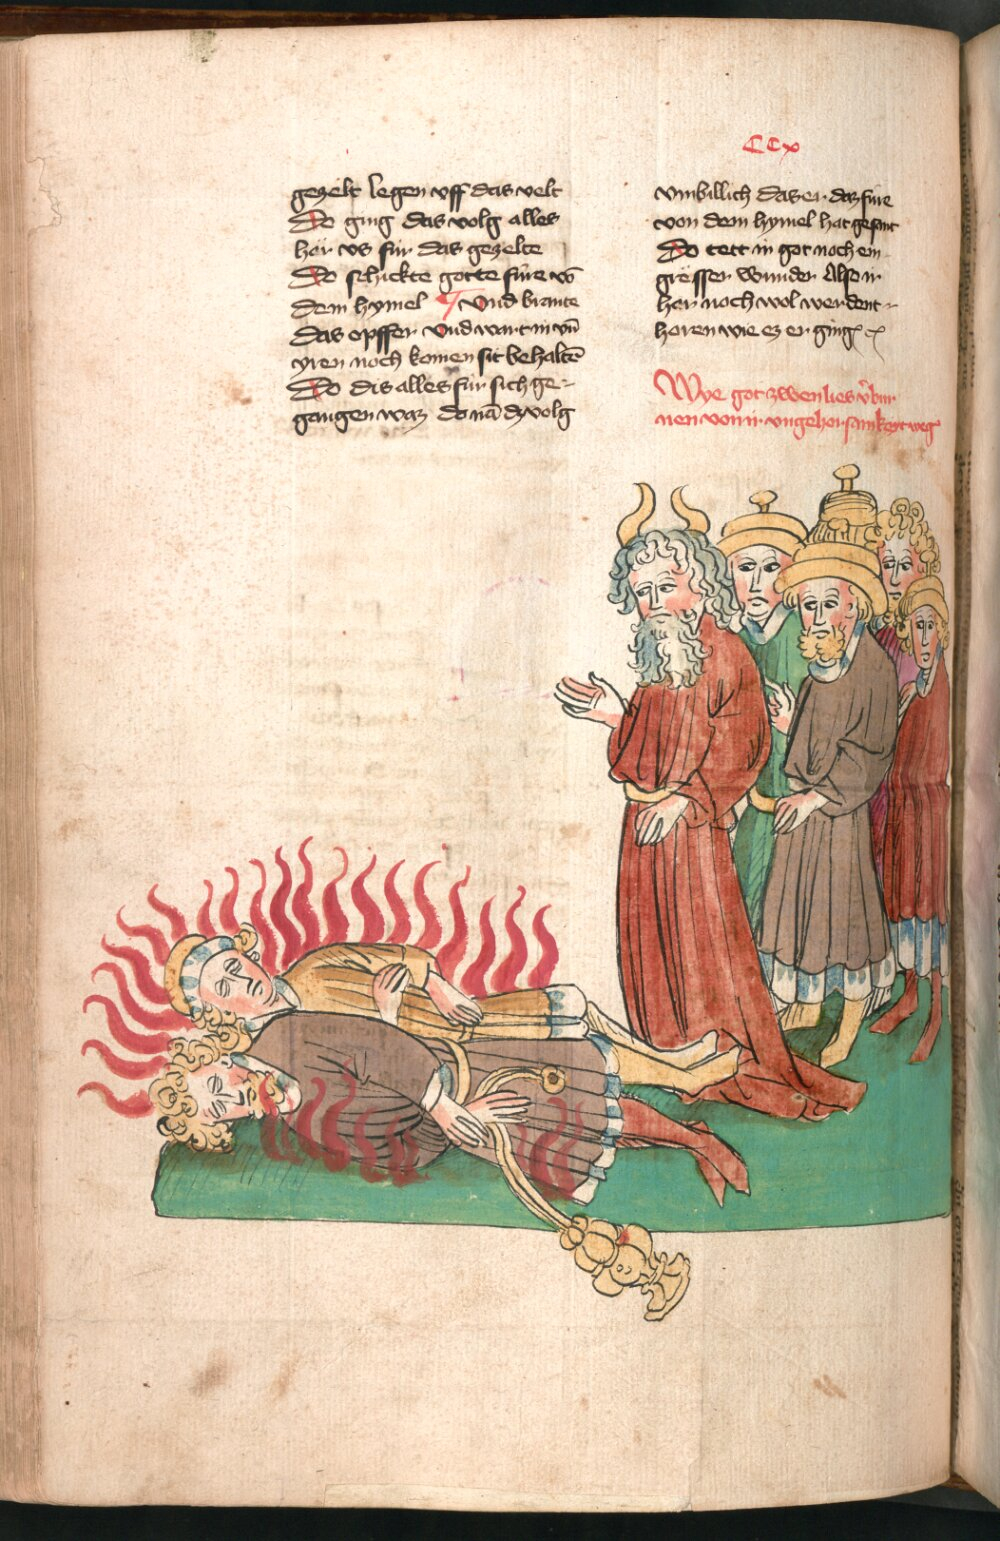 CCx
gezelt legen vff das velt
Do ging das volg alles
her vs fúr das gezelte
Do schickte gotte fúre vō
dem hymel Vnd brante
das opffer vnd wart in vn̄
yren noch komen sit behaltē
Do dis alles fúr sich ge-
gangen waz do nā dz volg
vmbillich das er daz fúre
von dem hymel hat gesant
Do tett in got noch ein
grósser wunder Also ir
her noch wol werdent
horen wie ez er ging
Wye got zwen lies v̄bur
nen von ir vngehorsamkeyt weg